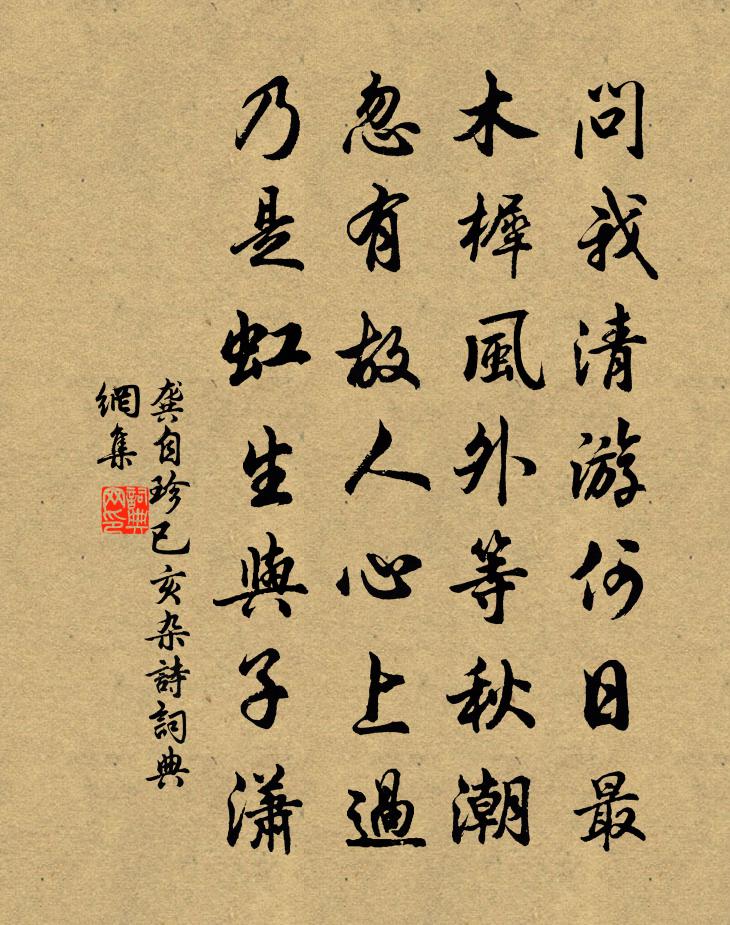 問我清游何日最
木樨風外等秋潮
忽有故人心上過
乃是虹生與子瀟
龔自珍己亥杂詩詞典
網集
詞典
网印